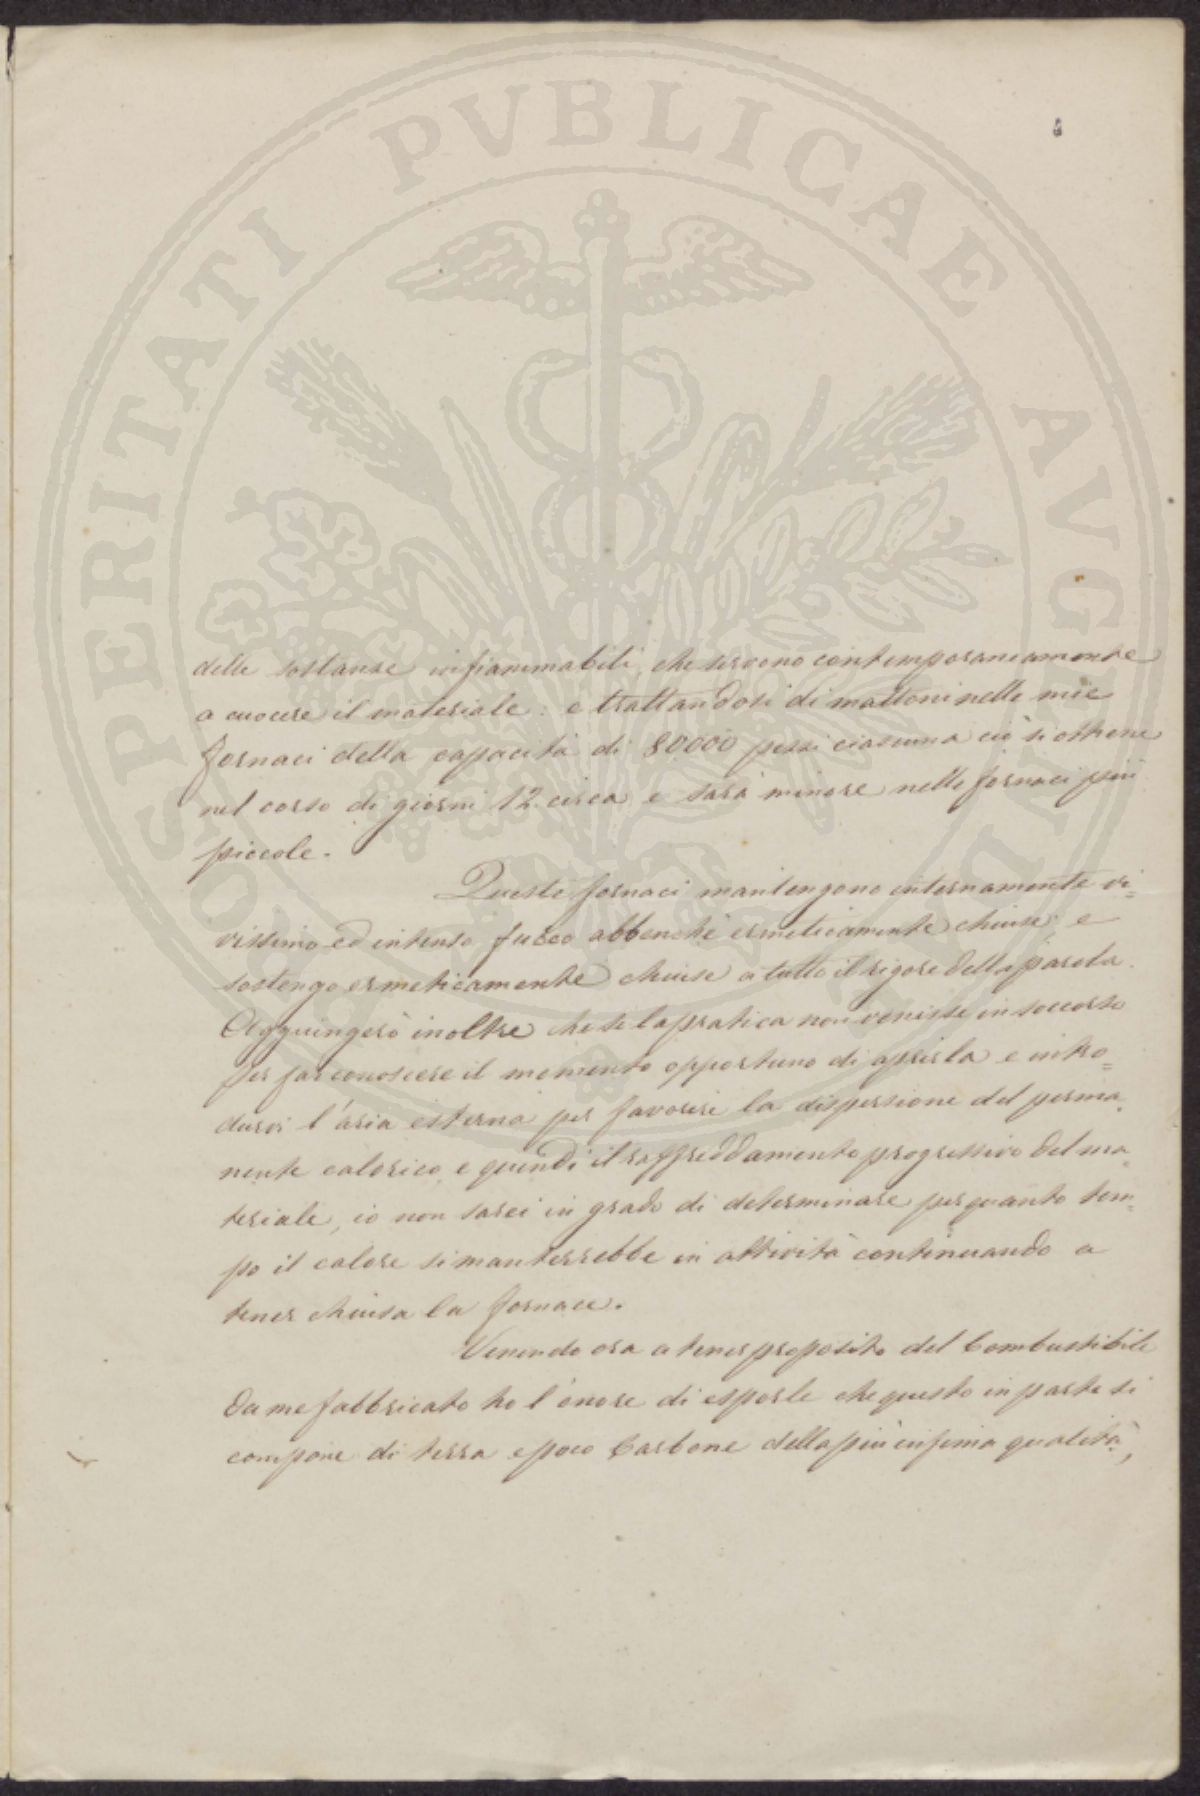 PROSPERITATI PVBLICAE AVGENDAE
delle sostanze infiammabili, che servono contemporaneamente
a cuocere il materiale: e trattandosi di mattoni nelle mie
fornaci della capacità di 80000 pezzi ciascuna ciò si ottiene
nel corso di giorni 12 circa e sarà minore nelle fornaci più
piccole.
Queste fornaci mantengono internamente vi=
vissimo ed intenso fuoco abbenchè ermeticamente chiuse, e
sostengo ermeticamente chiuse a tutto il rigore della parola.
Aggiungerò inoltre che se la pratica non venisse in soccorso
per far conoscere il momento opportuno di aprirla e intro=
durvi l'aria esterna per favorire la dispersione del perma=
nente calorico, e quindi il raffreddamento progressivo del ma=
teriale, io non sarei in grado di determinare per quanto tem=
po il calore si manterrebbe in attività continuando a
tener chiusa la fornace.
Venendo ora a tener proposito del Combustibile
da me fabbricato ho l'onore di esporle che questo in parte si
compone di terra e poco Carbone della più infima qualità,